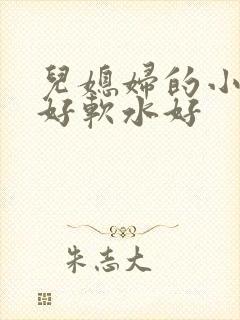 兒媳婦的小
好軟水好
朱志大